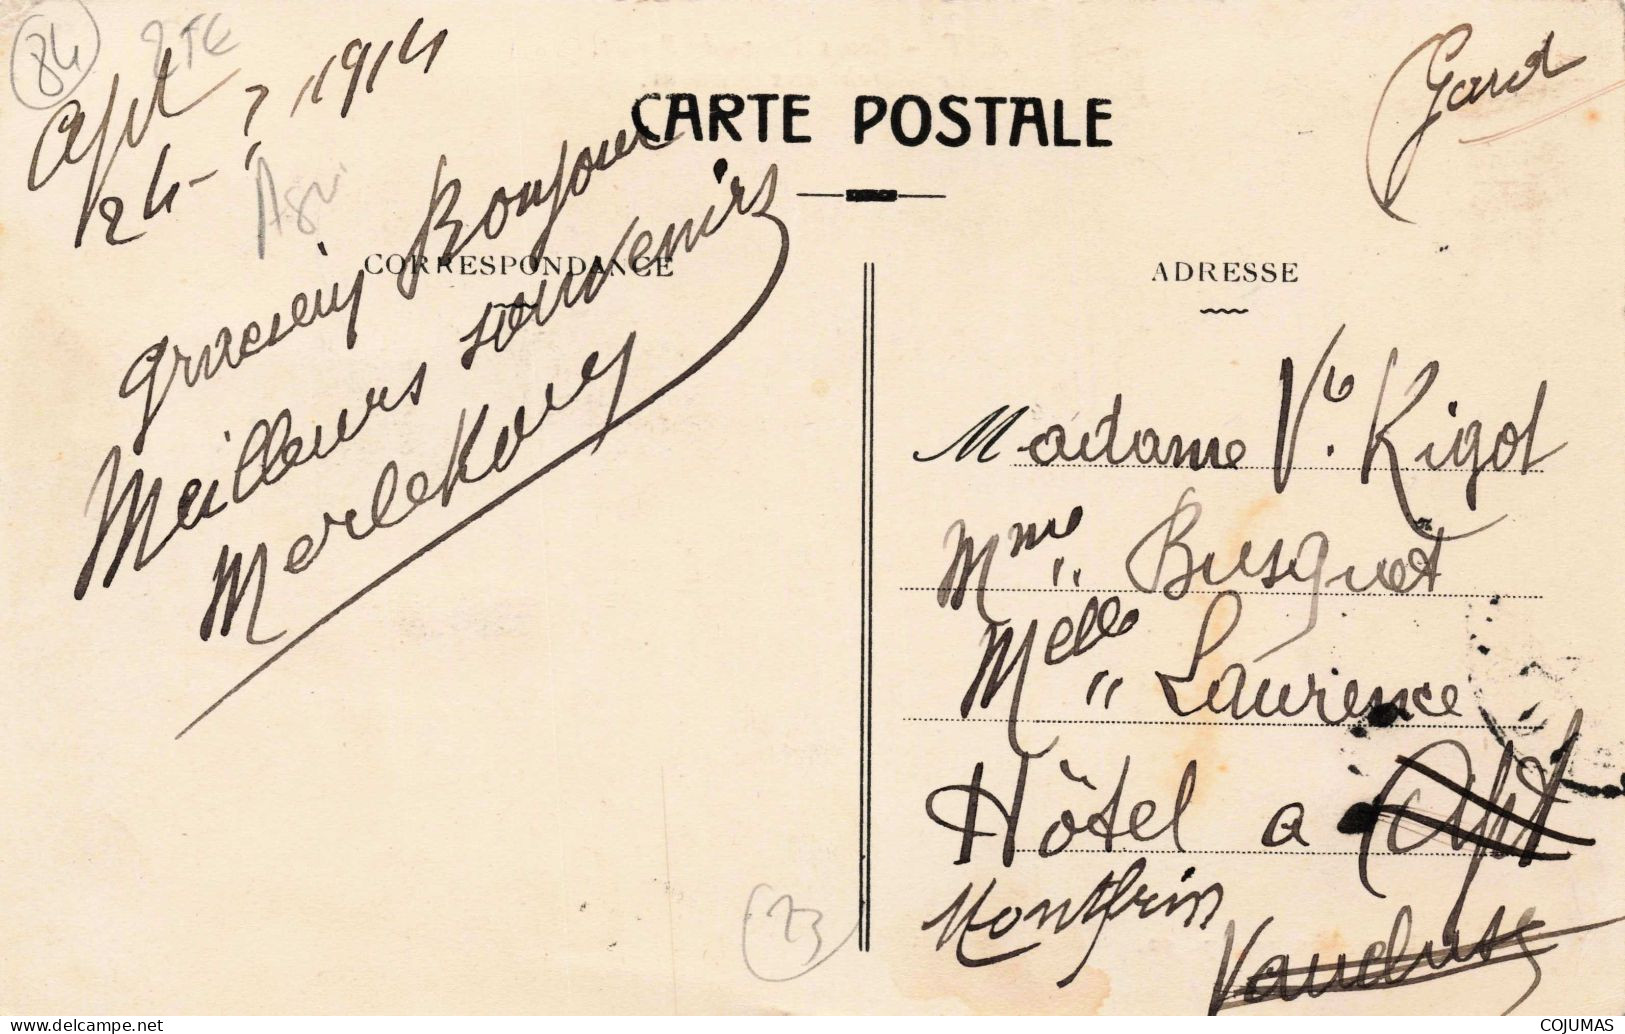 84
ETE
Apt
24-7-1914
CARTE POSTALE
Gard
Agri
CORRESPONDANCE
ADRESSE
Gracieux Bonjour
Meilleurs souvenirs
Madame Vve. Rigot
Mme Busquet
Melle Laurence
Hôtel a Apt
Montfrin
Vaucluse
COJUMAS